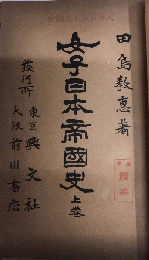 田島教惠著
女子日本帝國史 上卷
發行所
東京 興文社
大阪 前川書店